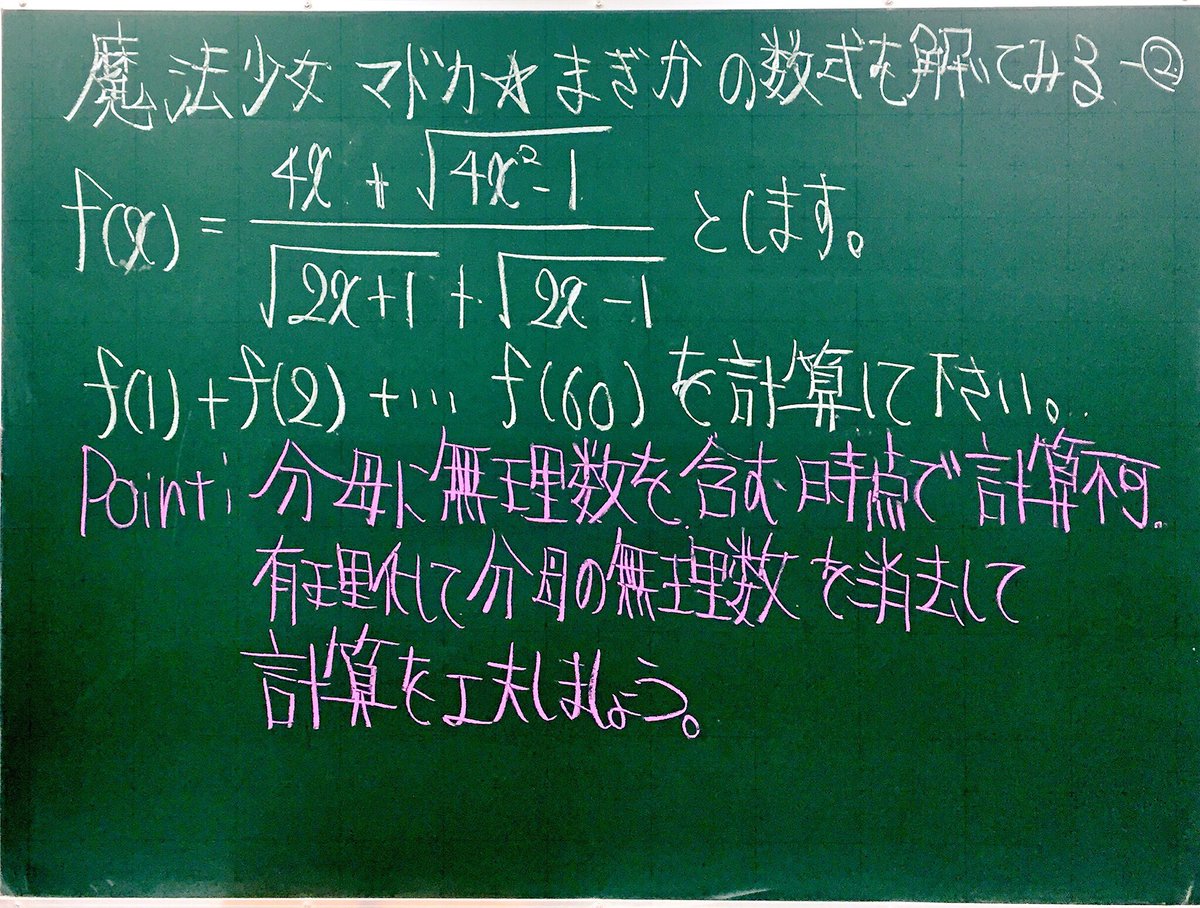 魔法少女マドカ☆まぎかの数式を解いてみる-②
f(x) = (4x + √(4x²-1)) / (√(2x+1) + √(2x-1)) とします。
f(1)+f(2)+… f(60)を計算して下さい。
Point: 分母に無理数を含む時点で計算不可.
有理化して分母の無理数を消去して
計算を工夫しましょう。